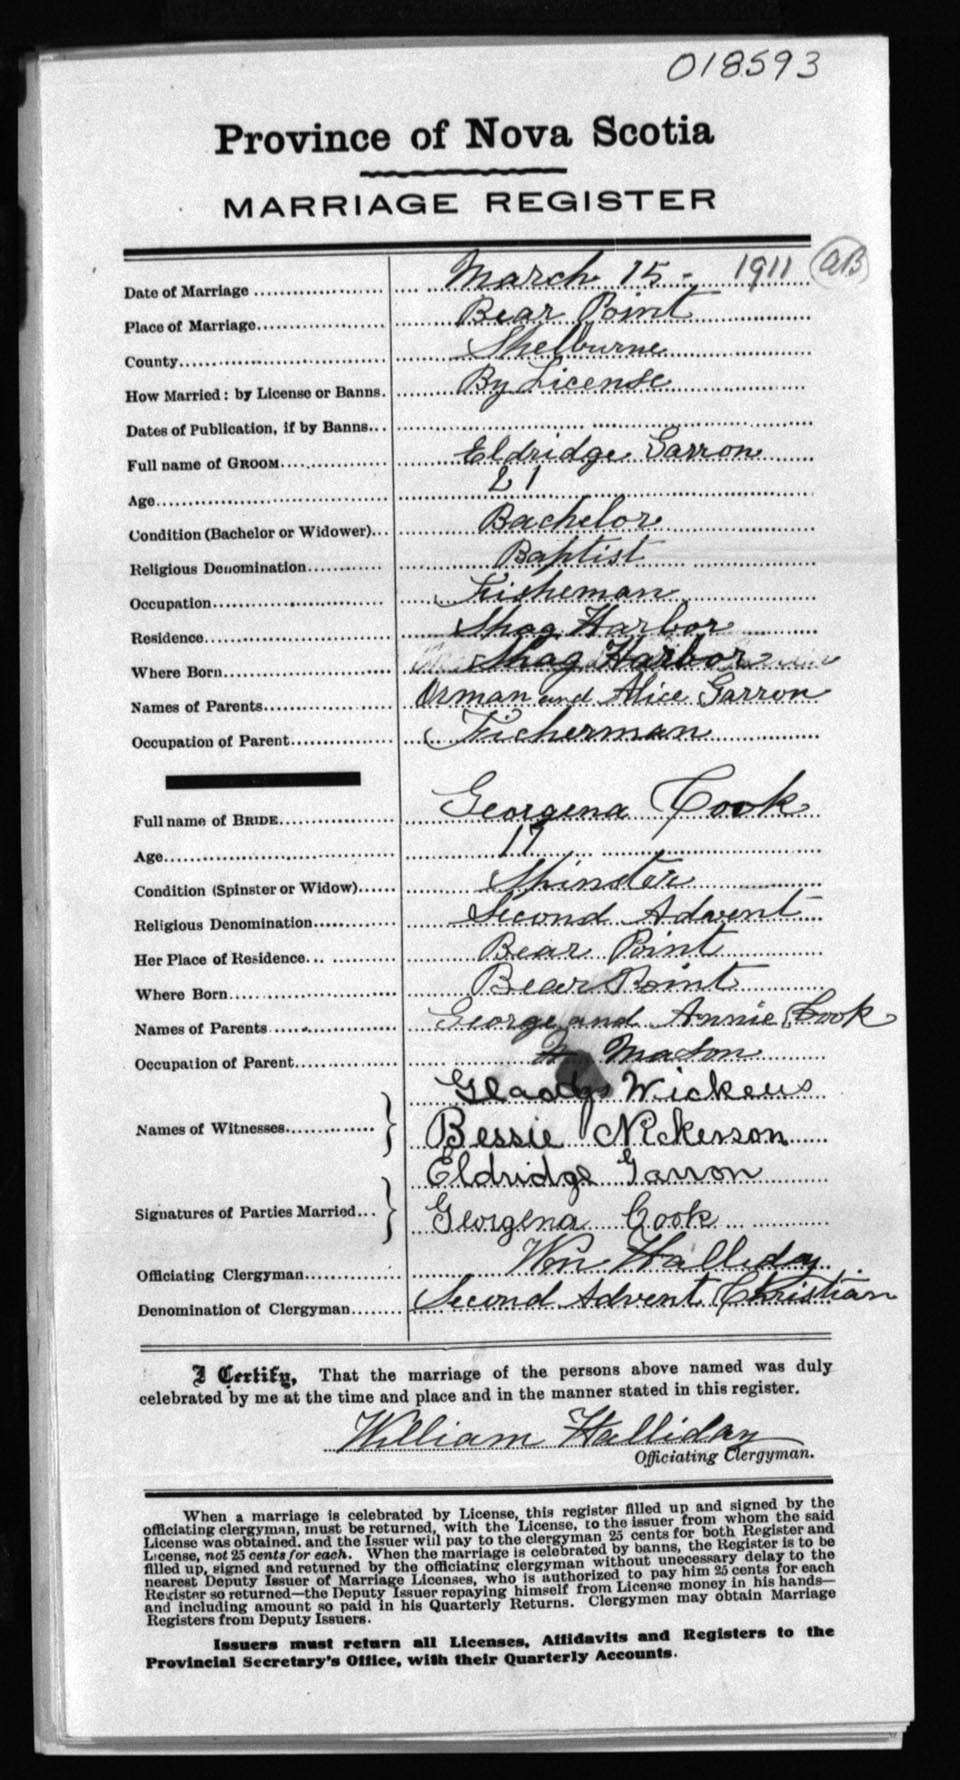 018593
Province of Nova Scotia
MARRIAGE REGISTER
Date of Marriage March 15 - 1911 AB
Place of Marriage Bear Point
County Shelburne
How Married: by License or Banns. By License
Dates of Publication, if by Banns
Full name of GROOM Eldridge Garron
Age 21
Condition (Bachelor or Widower) Bachelor
Religious Denomination Baptist
Occupation Fisheman
Residence Shag Harbor
Where Born Shag Harbor
Names of Parents Orman and Alice Garron
Occupation of Parent Ficherman
Full name of BRIDE Georgena Cook
Age 17
Condition (Spinster or Widow) Shinster
Religious Denomination Second Advent
Her Place of Residence Bear Point
Where Born Bear Point
Names of Parents George and Annie Cook
Occupation of Parent Mason
Gladys Wickens
Names of Witnesses Bessie Nickerson
Eldridge Garron
Signatures of Parties Married Georgena Cook
Officiating Clergyman Wm Halliday
Denomination of Clergyman Second Advent Christian
I Certify, That the marriage of the persons above named was duly
celebrated by me at the time and place and in the manner stated in this register.
William Halliday
Officiating Clergyman.
When a marriage is celebrated by License, this register filled up and signed by the
officiating clergyman, must be returned, with the License, to the issuer from whom the said
License was obtained. and the Issuer will pay to the clergyman 25 cents for both Register and
License, not 25 cents for each. When the marriage is celebrated by banns, the Register is to be
filled up, signed and returned by the officiating clergyman without unnecessary delay to the
nearest Deputy Issuer of Marriage Licenses, who is authorized to pay him 25 cents for each
Register so returned—the Deputy Issuer repaying himself from License money in his hands—
and including amount so paid in his Quarterly Returns. Clergymen may obtain Marriage
Registers from Deputy Issuers.
Issuers must return all Licenses, Affidavits and Registers to the
Provincial Secretary's Office, with their Quarterly Accounts.